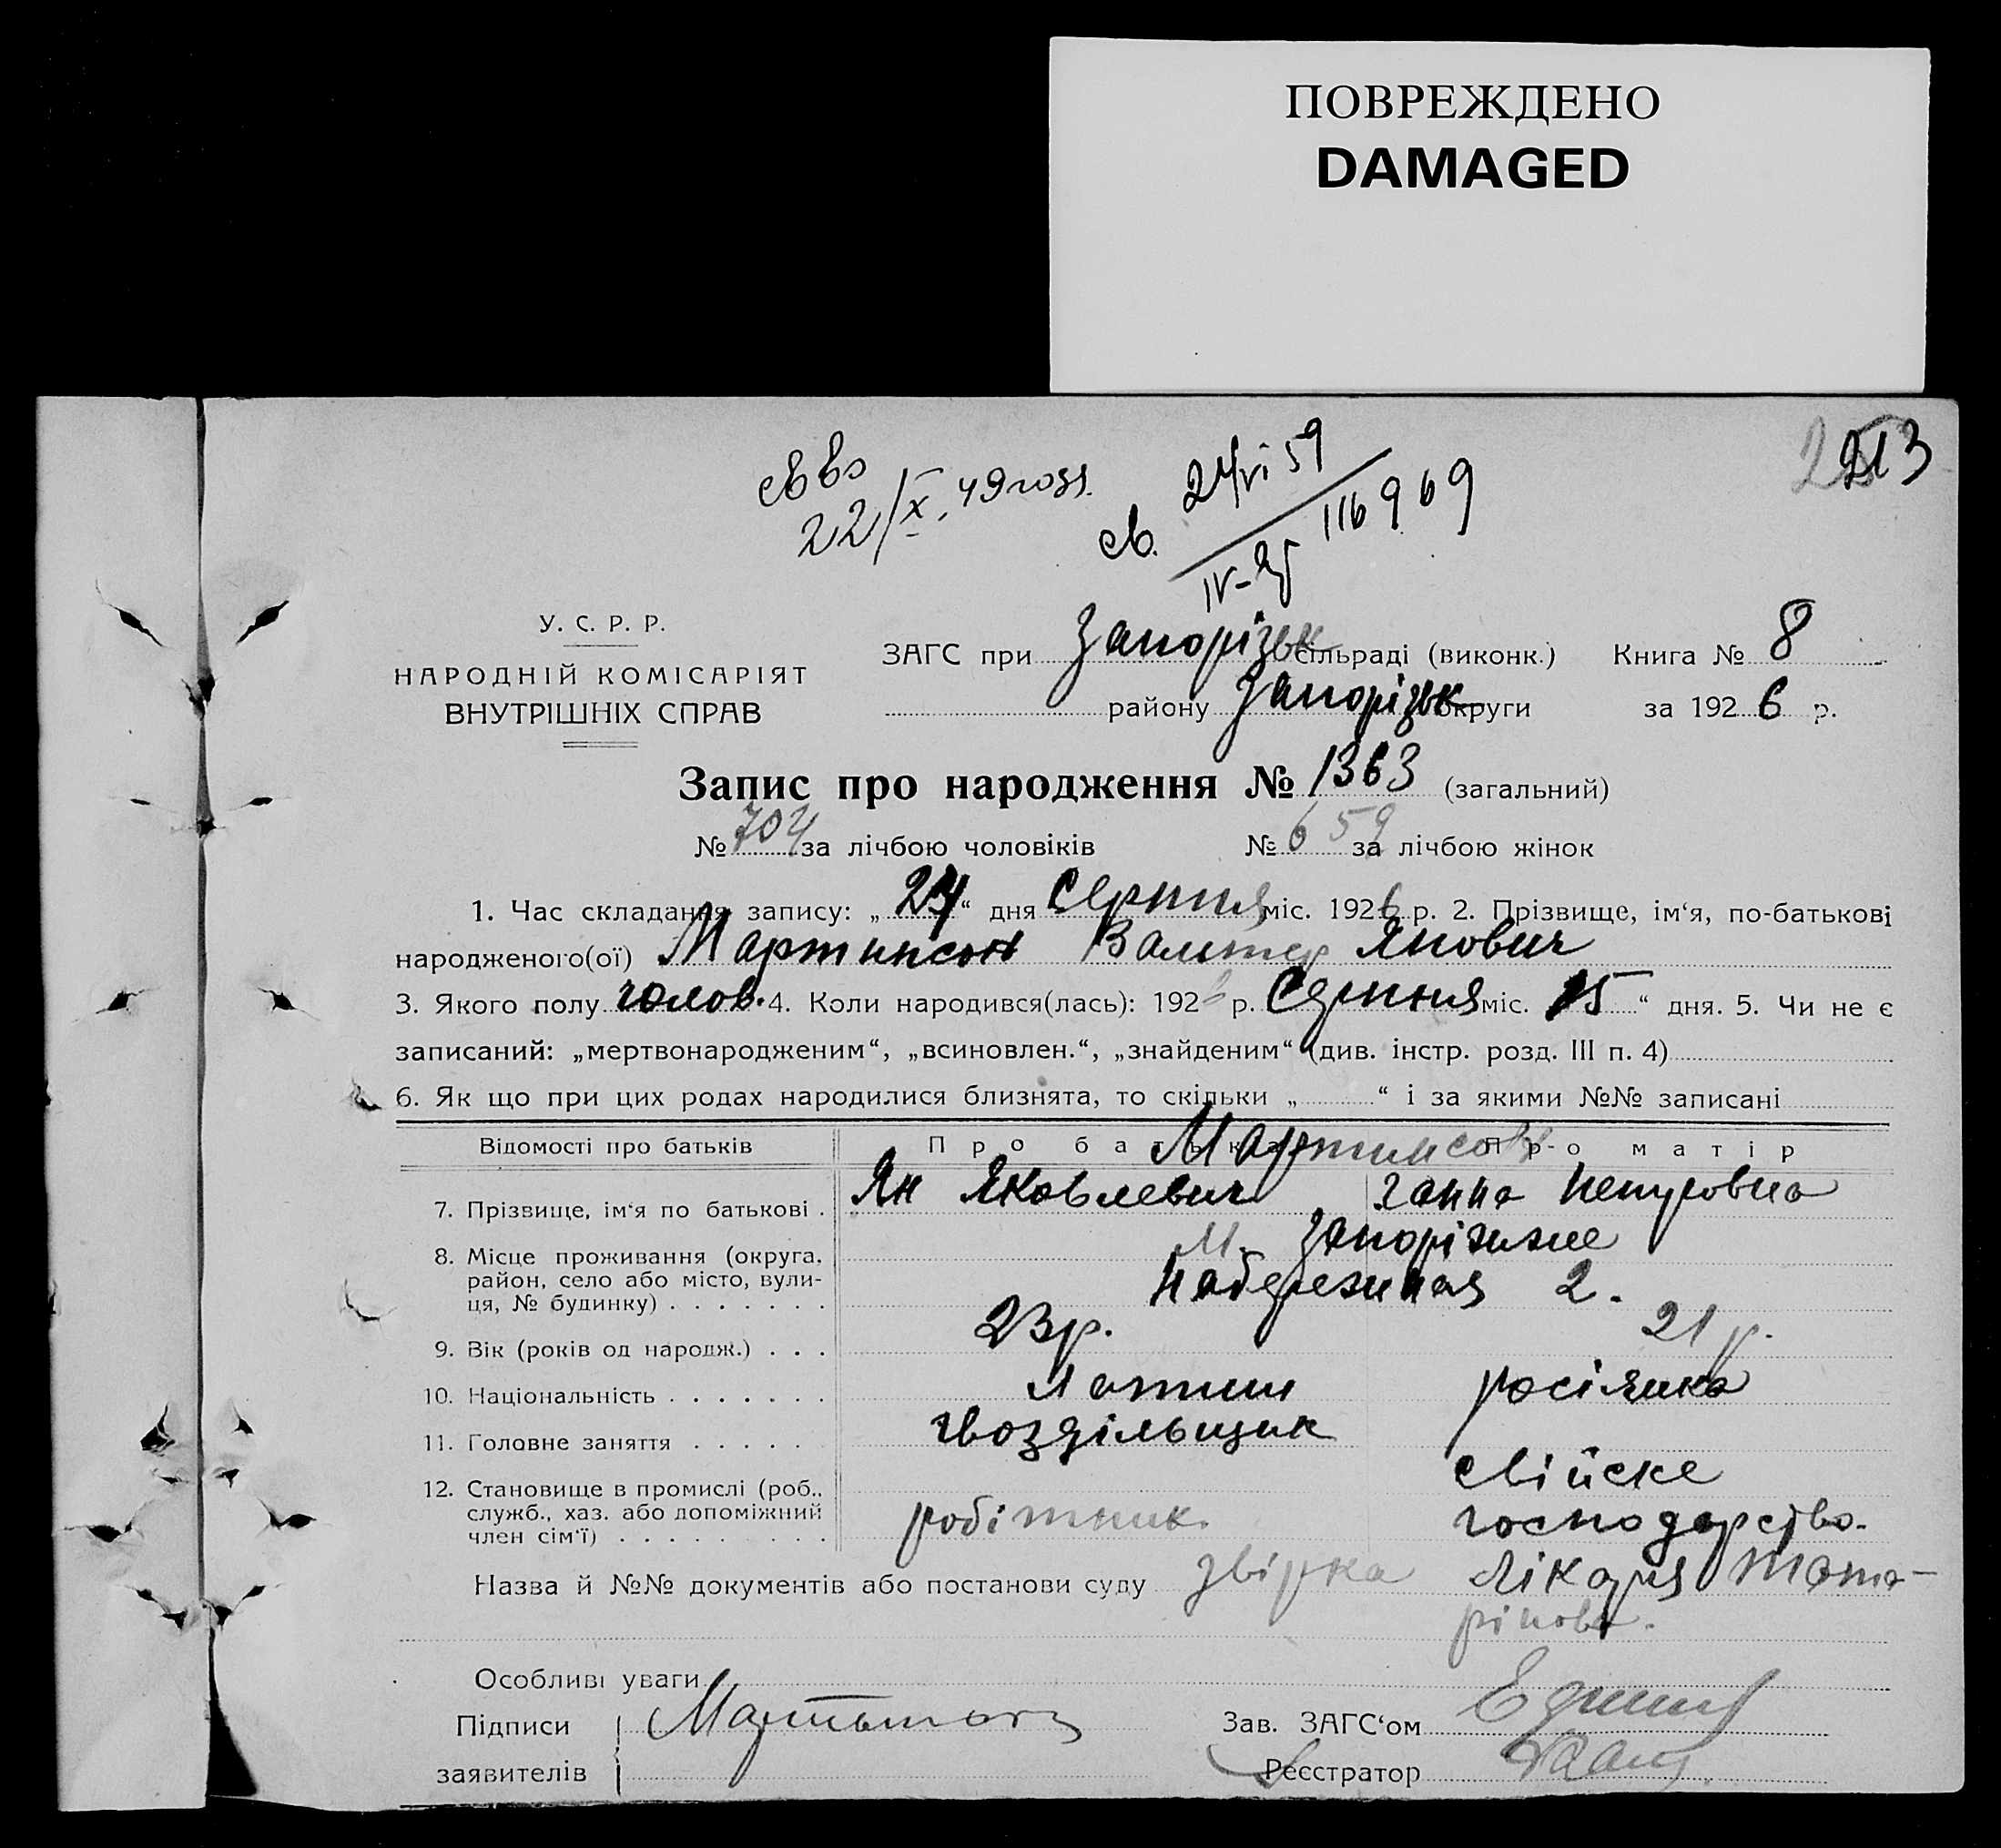 ПОВРЕЖДЕНО
DAMAGED
213
22/X. 49
св. 24/VI 59
116969
У. С. Р. Р.
НАРОДНІЙ КОМІСАРІЯТ
ВНУТРІШНІХ СПРАВ
ЗАГС при Запорізьк сільраді (виконк.) Книга № 8
району Запорізьк округи за 1926 р.
Запис про народження № 1363 (загальний)
№ 704 за лічбою чоловіків № 659 за лічбою жінок
1. Час складання запису: „24“ дня Серпня міс. 1926 р. 2. Прізвище, ім‘я, по-батькові
народженого(ої) Мартинсон Вальтер Янович
3. Якого полу чолов. 4. Коли народився(лась): 1926 р. Серпня міс. 15“ дня. 5. Чи не є
записаний: „мертвонародженим“, „всиновлен.“, „знайденим“ (див. інстр. розд. III п. 4)
6. Як що при цих родах народилися близнята, то скільки „ “ і за якими №№ записані
Відомості про батьків Про батька Про матір
Мартинсон
7. Прізвище, ім‘я по батькові . Ян Яковлевич Ганна
8. Місце проживання (округа, район, село або місто, вулиця, № будинку) . . . . . . . М. Запоріжже
Набережная 2.
9. Вік (років од народж.) . . . 23 р. 21 р.
10. Національність . . . . . . . Латиш росіянка
11. Головне заняття . . . . . гвоздільщик
свійске
12. Становище в промислі (роб., служб., хаз. або допоміжний член сім‘ї) . . . . . . . . . робітник господарство.
Назва й №№ документів або постанови суду звірка лікаря Тата-
рінова.
Особливі уваги
Підписи Зав. ЗАГС‘ом
заявителів Реєстратор